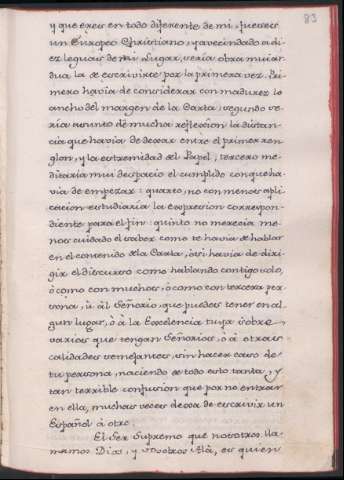 83
y que eres en todo diferente de mi, fueses
un Europeo Christiano, y avecindado a di
ez leguas de mi Lugar, seria obra mui ar
dua la de escrivirte por la primera vez. Pri
mero havia de considerar con madurez lo
ancho del margen de la Carta, segundo se
ria asunto de mucha reflecsion la distan
cia que havia de dexar entre el primer ren
glon, y la estremidad del Papel, tercero me
ditaria mui despacio el cumplido con que ha
via de empezar: quarto, no con menos apli
cacion estudiaria la expresion correspon
diente para el fin: quinto no merecia me
nos cuidado el saber como te havia de hablar
en el contenido de la Carta, ó si havia de diri
gir el discurso como hablando contigo solo,
ó como con muchos, ó como con tercera per
sona, ú al Señorio, que puedes tener en al
gun lugar, ó á la Excelencia tuya sobre
varios que tengan Señorios, ó á otras
calidades semejantes, sin hacer caso de
tu persona, naciendo de todo esto tanta, y
tan terrible confusion que por no entrar
en ella, muchas veces dexa de escrivir un
Español á otro.
El Ser Supremo que nosotros lla
mamos Dios, y vosotros Alà, es quien